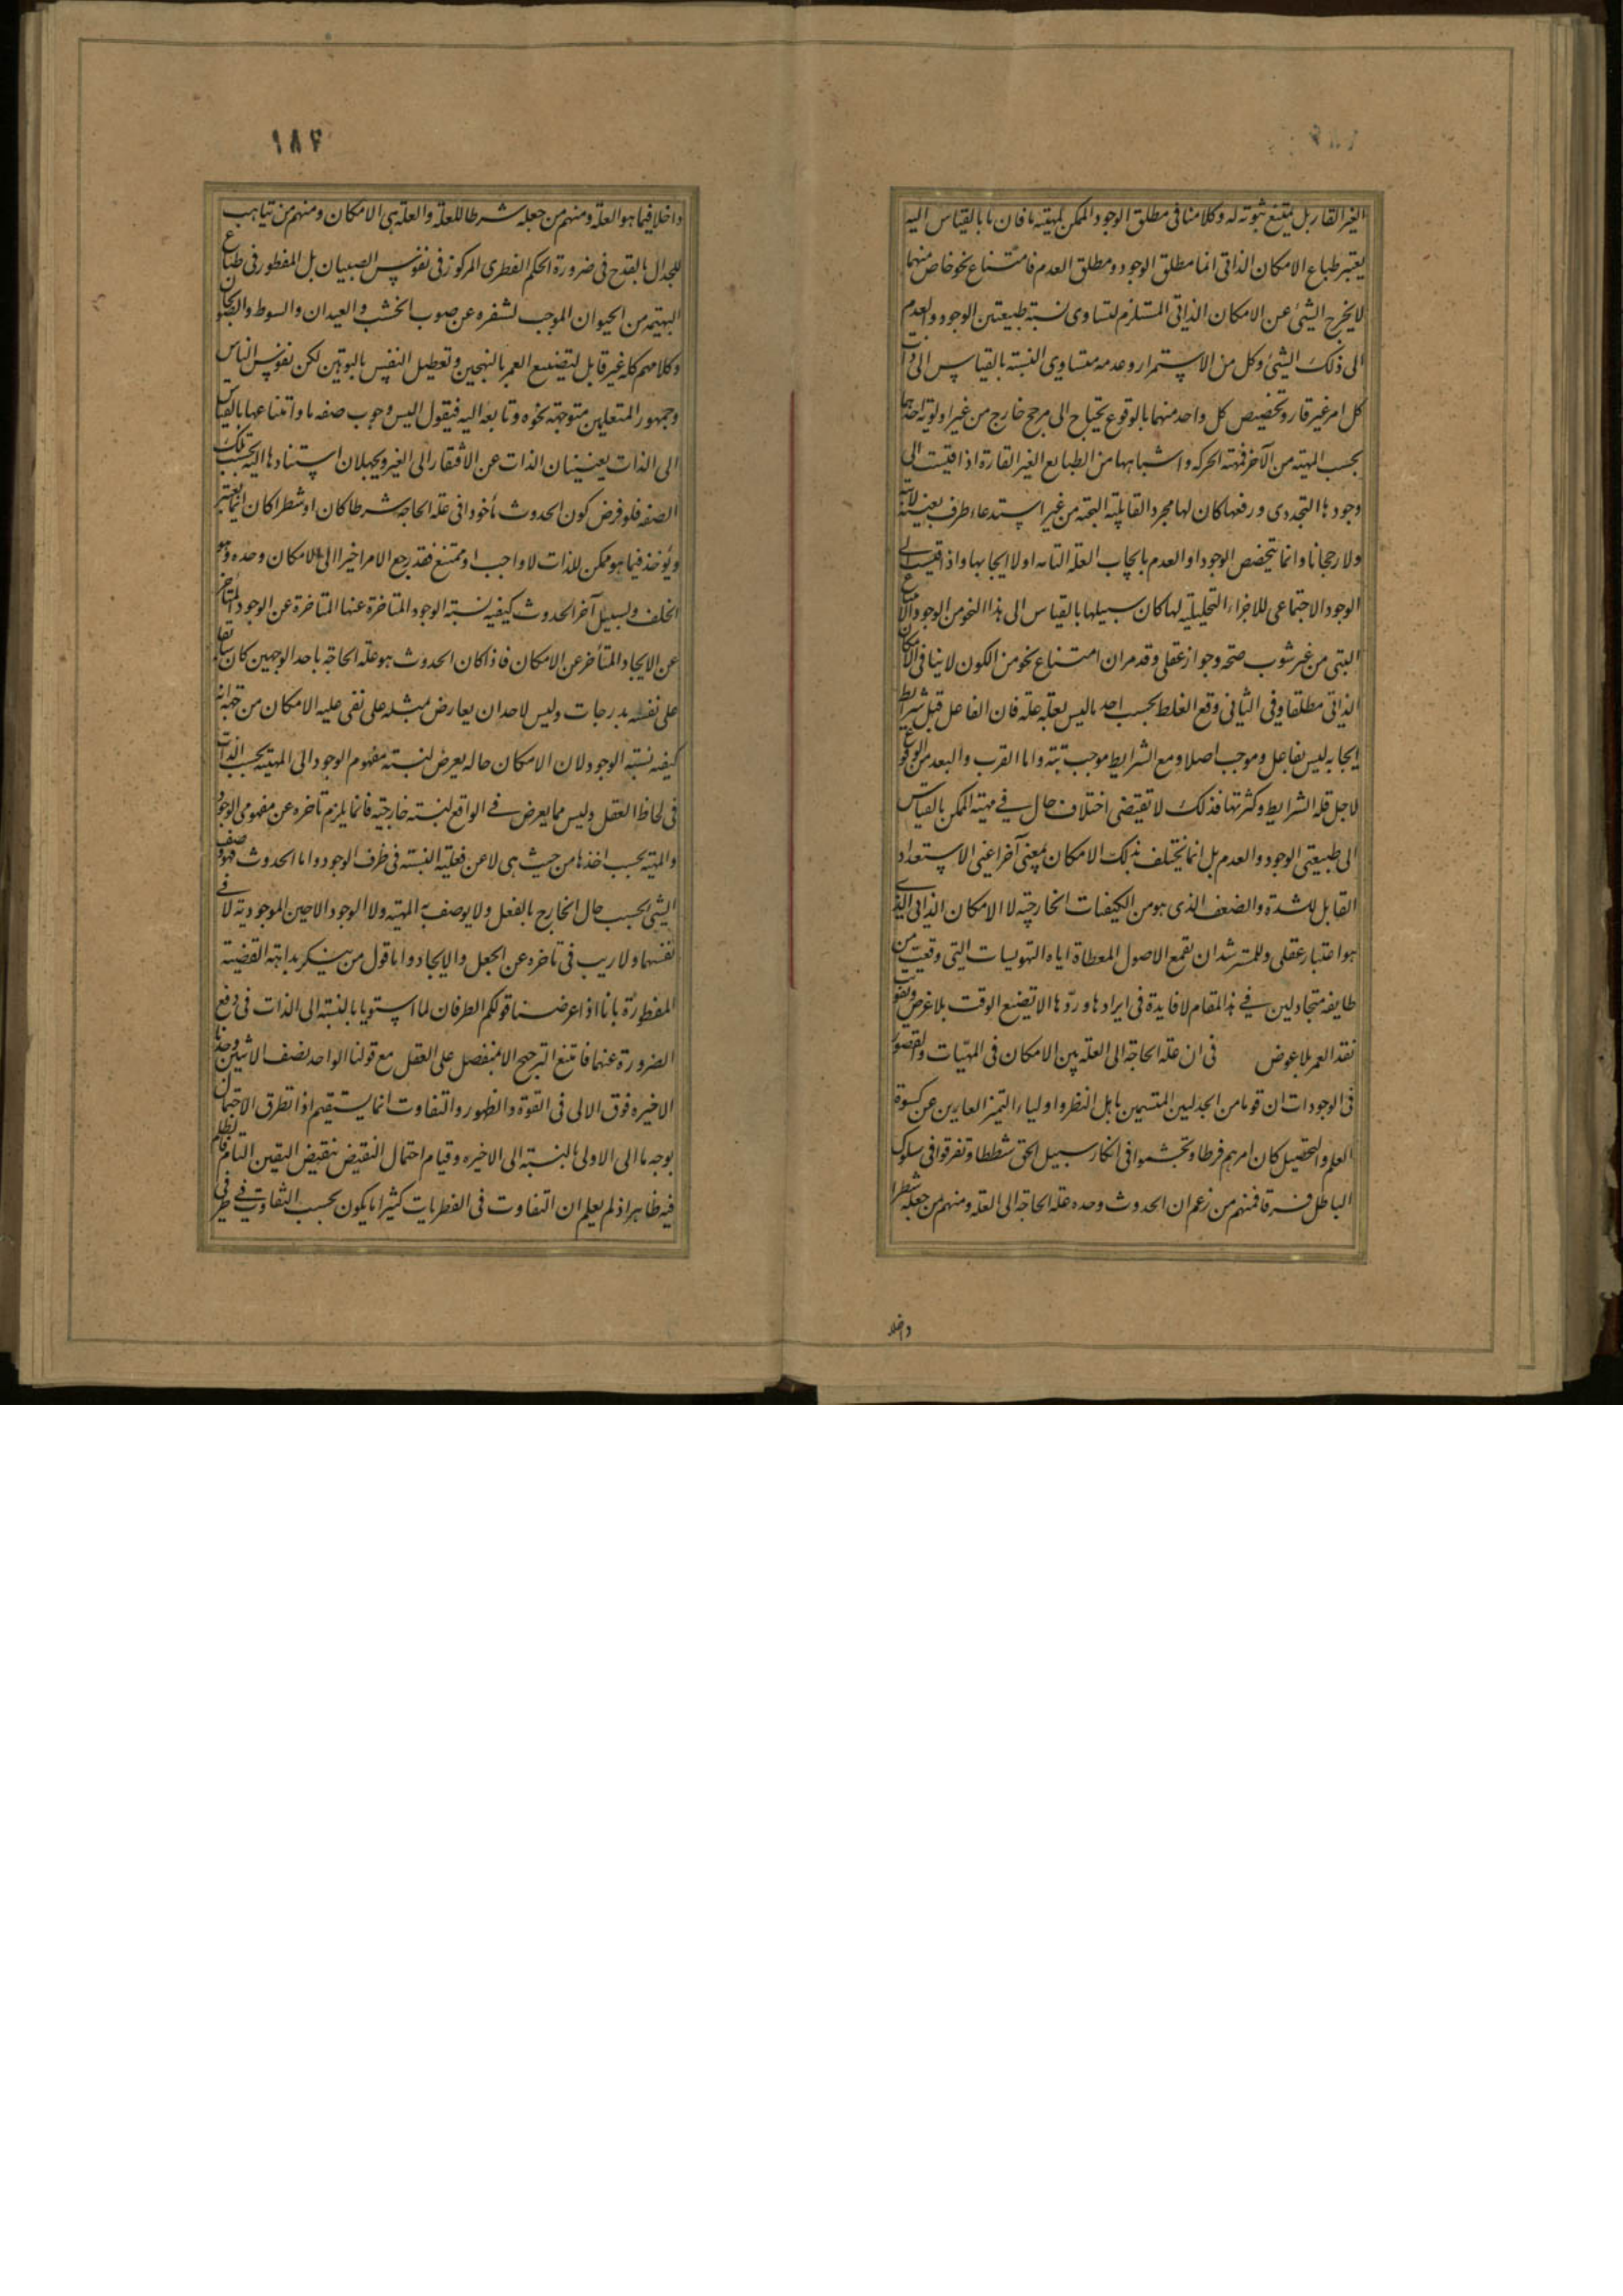 الغير القار بل يمتنع ثبوته له وكلامنا فى مطلق الوجود الممكن لمهيته ما فان ما بالقياس اليه
يعتبر طباع الامكان الذاتى انما مطلق الوجود ومطلق العدم فامتناع نحو خاص منهما
لا يخرج الشئ عن الامكان الذاتى المستلزم لتساوى نسبة طبيعتين الوجود والعدم
الى ذلك الشئ وكل من الاستمرار وعدمه متساوى النسبة بالقياس الى ذات
كل امر غير قار وتخصيص كل واحد منهما بالوقوع يحتاج الى مرجح خارج من غير اولوية احدهما
بحسب المهية من الآخر فمهية الحركة واشباهها من الطبايع الغير القارة اذا قيست الى
وجودها التجددى ورفعها كان لها مجرد القابلية البحتة من غير استدعاء طرف بعينه لابتة
ولا رجحانا وانما يتخصص الوجود او العدم بايجاب العلة التامة او لا ايجابها واذا قيست الى
الوجود الاجتماعى للاجزاء التحليلية لها كان سبيلها بالقياس الى هذا النحو من الوجود الامتناع
البتى من غير شوب صحة وجواز عقلى وقد مر ان امتناع نحو من الكون لا ينافى الامكان
الذاتى مطلقا وفى الثانى وقع الغلط بحسب اخذ ما ليس بعلة علة فان الفاعل قبل شرايط
ايجابه ليس بفاعل وموجب اصلا ومع الشرايط موجب بتة واما القرب والبعد من الوقوع
لاجل قلة الشرايط وكثرتها فذلك لا تقتضى اختلاف حال فى مهية الممكن بالقياس
الى طبيعتى الوجود والعدم بل انما تختلف بذلك الامكان بمعنى آخر اعنى الاستعداد
القابل للشدة والضعف الذى هو من الكيفيات الخارجية لا الامكان الذاتى الذى
هو اعتبار عقلى وللمسترشد ان يقمع الاصول المعطاة اياه التهويسات التى وقعت من
طايفة متجادلين فى هذا المقام لا فايدة فى ايرادها وردّها الا تضيع الوقت بلا غرض وتفويت
نقد العمر بلا عوض فى ان علة الحاجة الى العلة هى الامكان فى المهيات والقصور
فى الوجودات ان قوما من الجدليين المتسمين باهل النظر واولياء التميز العارين عن كسوة
العلم والتحصيل كان امرهم فرطا وتجشموا فى انكار سبيل الحق شططا وتفرقوا فى سلوك
الباطل فرقا فمنهم من زعم ان الحدوث وحده علة الحاجة الى العلة ومنهم من جعله شطرا
داخلا
١٨٧
داخلا فيما هو العلة ومنهم من جعله شرطا للعلة والعلة هى الامكان ومنهم من يتاهب
للجدال بالقدح فى ضرورة الحكم الفطرى المركوز فى نفوس الصبيان بل المفطور فى طباع
البهيمة من الحيوان الموجب لتنفره عن صوب الخشب والعيدان والسوط والصولجان
وكلامهم كله غير قابل لتضييع العمر بالتهجين وتعطيل النفس بالتوهين لكن نفوس الناس
وجمهور المتعلمين متوجهة نحوه وتابعة اليه فيقول اليس وجوب صفة ما وامتناعها بالقياس
الى الذات يغنيان الذات عن الافتقار الى الغير ويحيلان استنادها اليه بحسب تلك
الصفة فلو فرض كون الحدوث مأخوذا فى علة الحاجة شرطا كان او شطرا كان انما يعتبر
ويؤخذ فيما هو ممكن للذات لا واجب او ممتنع فقد رجع الامر اخيرا الى الامكان وحده وهو
الخلف ولسبيل آخر الحدوث كيفية نسبة الوجود المتاخرة عنها المتاخرة عن الوجود المتأخر
عن الايجاد المتأخر عن الامكان فاذا كان الحدوث هو علة الحاجة باحد الوجهين كان سابقا
على نفسه بدرجات وليس لاحد ان يعارض بمثله على نفى علية الامكان من جهة انه
كيفية نسبة الوجود لان الامكان حالة يعرض لنسبة مفهوم الوجود الى المهية بحسب الذات
فى لحاظ العقل وليس مما يعرض فى الواقع لنسبة خارجية فانما يلزم تاخره عن مفهومى الوجود
والمهية بحسب اخذها من حيث هى لا عن فعلية النسبة فى ظرف الوجود واما الحدوث فهو وصف
الشئ بحسب حال الخارج بالفعل ولا يوصف به المهية ولا الوجود الا حين الموجودية لا فى
نفسها ولا ريب فى تاخره عن الجعل والايجاد واما قول من ينكر بداهة القضية
المفطورة بانا اذا عرضنا قولكم الطرفان لما استويا بالنسبة الى الذات فى رفع
الضرورة عنهما فامتنع الترجيح الا بمنفصل على العقل مع قولنا الواحد نصف الاثنين وجدنا
الاخيرة فوق الاولى فى القوة والظهور والتفاوت انما يستقيم اذا تطرق الاحتمال
بوجه ما الى الاولى بالنسبة الى الاخيره وقيام احتمال النقيض نقيض اليقين التام فالظلم
فيه ظاهر اذ لم يعلم ان التفاوت فى الفطريات كثيرا ما يكون بحسب التفاوت فى طرفى